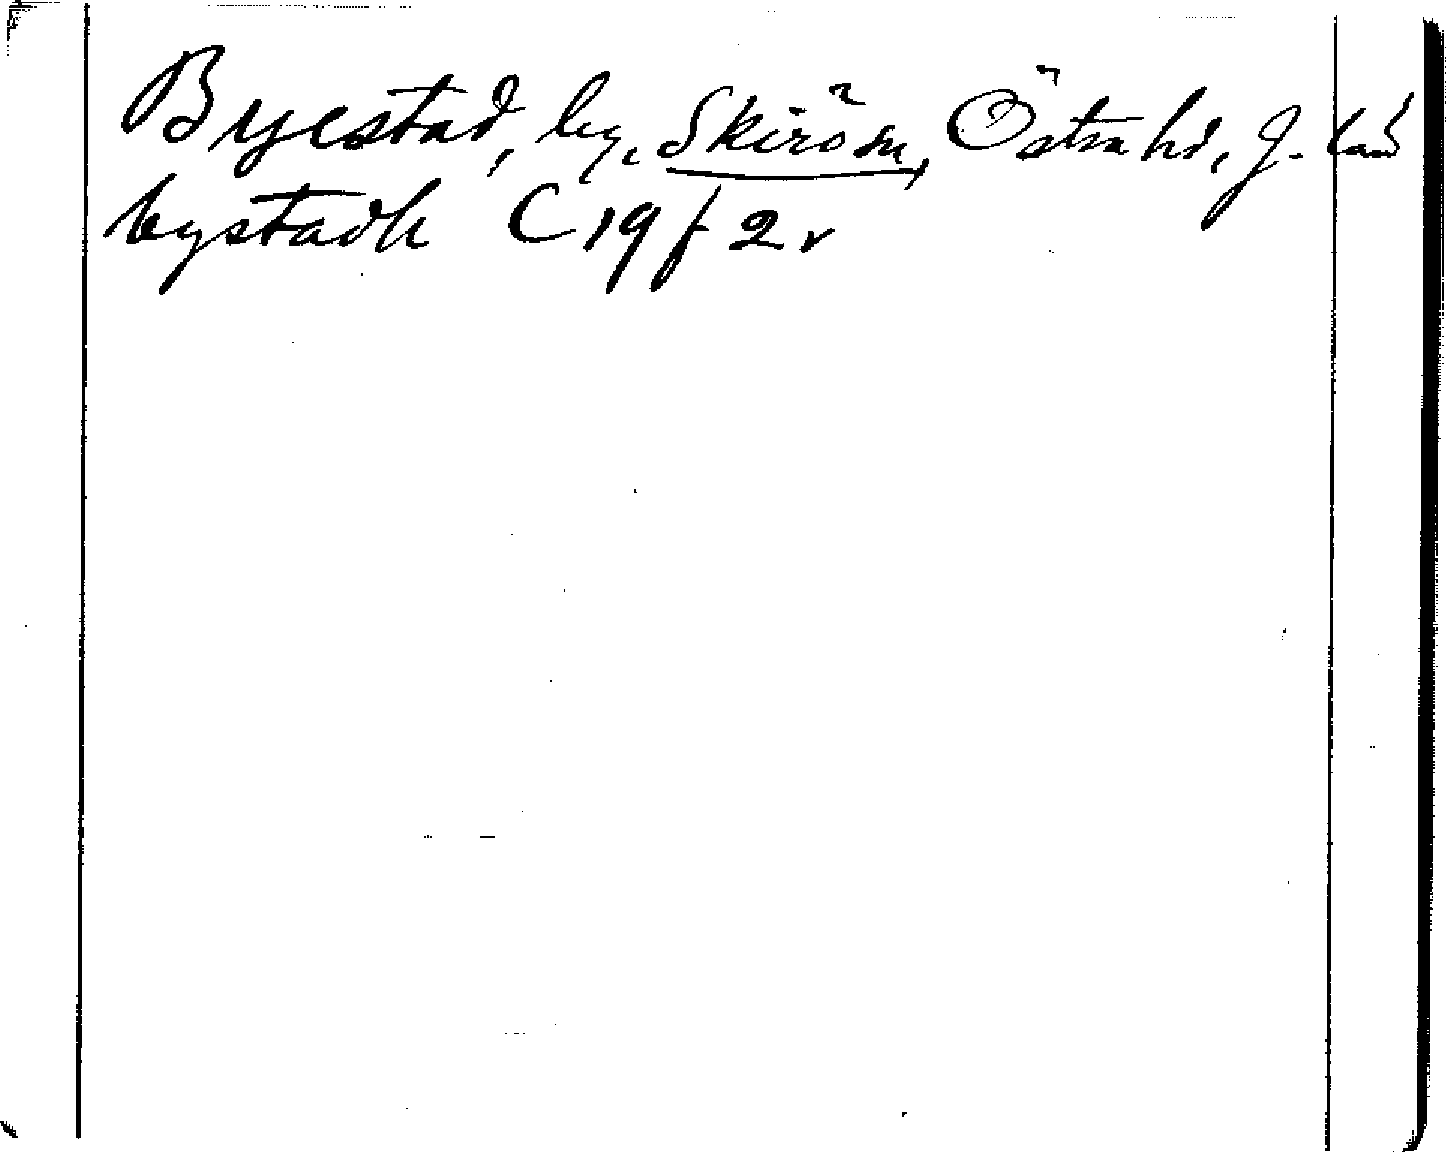 Bryestad, by, Skirö sn, Östra hd, J. län
bystadh C 19 f 2 v